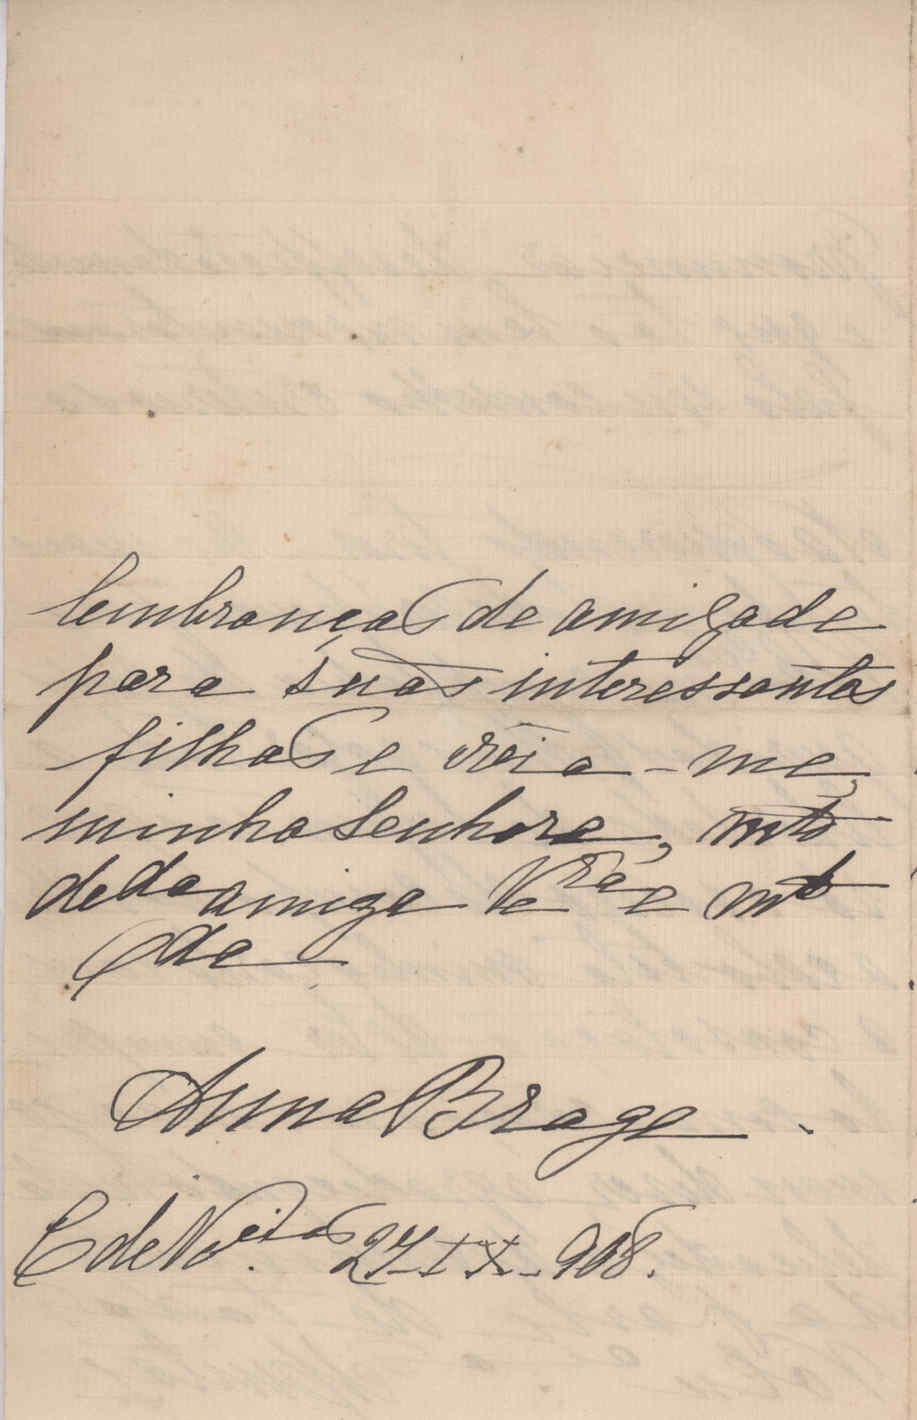 lembranças de amizade
para suas interessantes
filhas e veja-me,
minha Senhora, mto
deda amiga Vera e mto
Anna Braga.
C de No 27-IX-908.